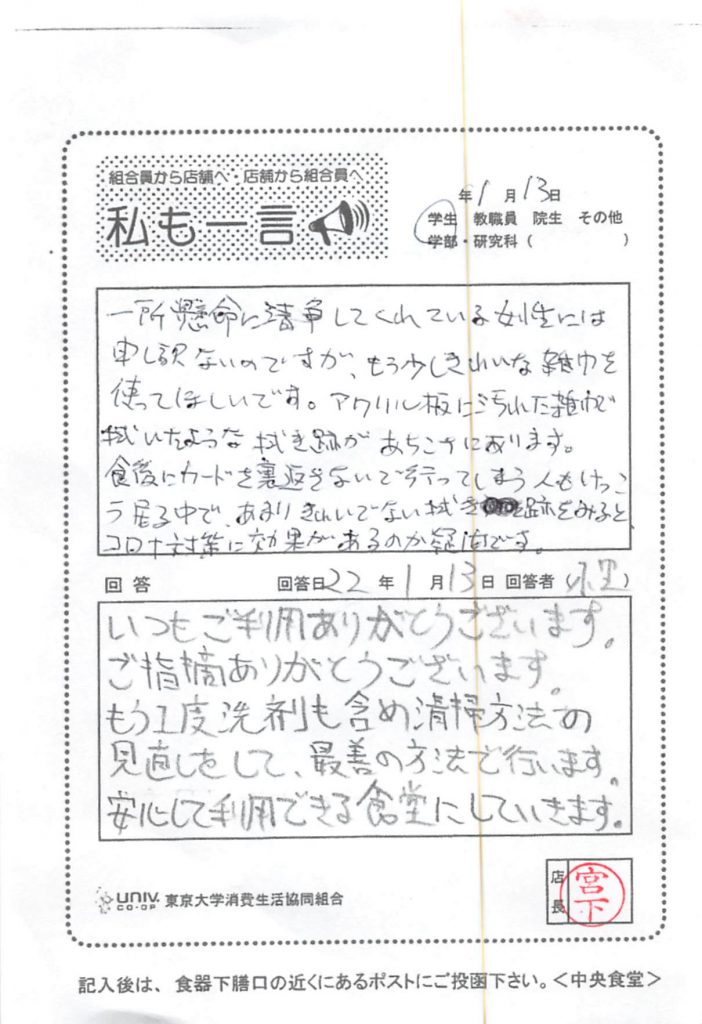 組合員から店舗へ・店舗から組合員へ
私も一言
年1月13日
学生 教職員 院生 その他
学部・研究科( )
一所懸命に清掃してくれている女性には
申し訳ないのですが、もう少しきれいな雑巾を
使ってほしいです。アクリル板に汚れた雑巾で
拭いたような拭き跡があちこちにあります。
食後にカードを裏返さないで行ってしまう人もけっこ
う居る中で、あまりきれいでない拭き跡をみると、
コロナ対策に効果があるのか疑問です。
回答 回答日22年1月13日 回答者( )
いつもご利用ありがとうございます。
ご指摘ありがとうございます。
もう1度洗剤も含め清掃方法の
見直しをして、最善の方法で行います。
安心して利用できる食堂にしていきます。
UNIV. CO-OP 東京大学消費生活協同組合
店長 宮下
記入後は、食器下膳口の近くにあるポストにご投函下さい。<中央食堂>